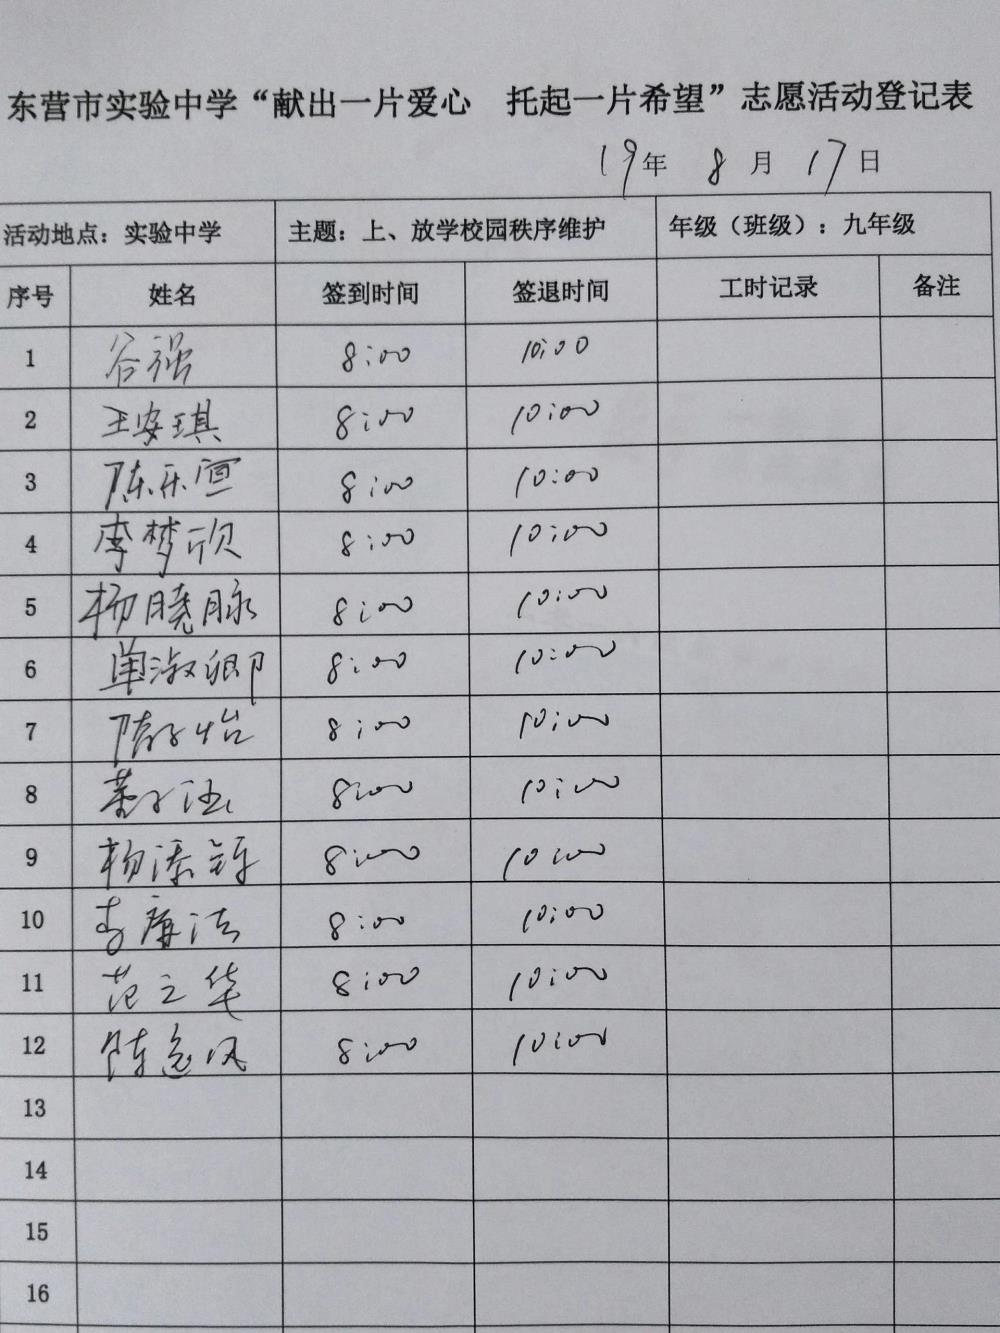 东营市实验中学“献出一片爱心 托起一片希望”志愿活动登记表
19年 8月 17日
活动地点：实验中学 主题：上、放学校园秩序维护 年级（班级）：九年级
序号 姓名 签到时间 签退时间 工时记录 备注
1 谷强 8:00 10:00
2 王安琪 8:00 10:00
3 陈乐宣 8:00 10:00
4 李梦欣 8:00 10:00
5 杨晓脉 8:00 10:00
6 单淑卿 8:00 10:00
7 隋子怡 8:00 10:00
8 8:00 10:00
9 杨添铎 8:00 10:00
10 李廉洁 8:00 10:00
11 范立华 8:00 10:00
12 陈逸风 8:00 10:00
13
14
15
16